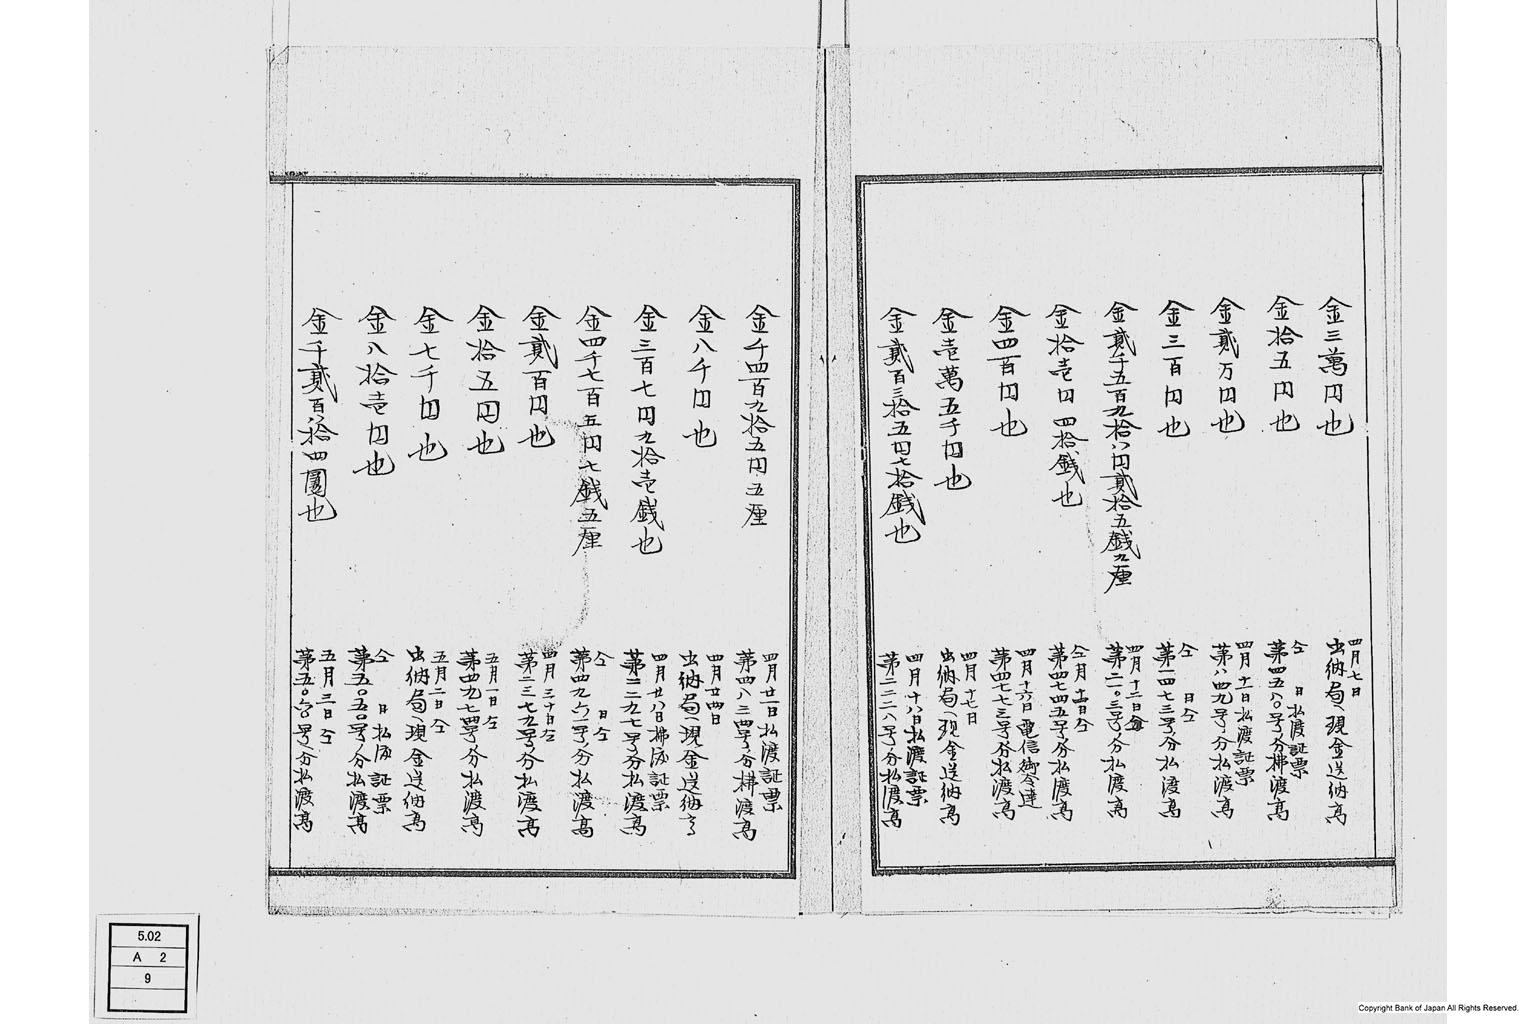 金三萬円也
四月七日
出納局へ現金送納高
金拾五円也
仝日払渡証票
第四五八〇号分拂渡高
金貳万円也
四月十一日払渡証票
第八四九号分払渡高
金三百円也
仝日仝
第一四七三号分払渡高
金貳千五百九拾八円貳拾五銭九厘
四月十二日仝
第二〇三号分払渡高
金拾壱円四拾銭也
仝月十四日仝
第四七四五号分払渡高
金四百円也
四月十六日電信御令達
第四七七三号分払渡高
金壱萬五千円也
四月十七日
出納局へ現金送納高
金貳百三拾五円七拾銭也
四月十八日払渡証票
第二三二八号分払渡高
金千四百九拾五円五厘
四月廿一日払渡証票
第四八三四号分拂渡高
金八千円也
四月廿四日
出納局へ現金送納高
金三百七円九拾壱銭也
四月廿八日拂渡証票
第二二九七号分払渡高
金四千七百五円七銭五厘
仝日仝
第四九六一号分払渡高
金貳百円也
四月三十日仝
第二三七九号分払渡高
金拾五円也
五月一日仝
第四九七四号分払渡高
金七千円也
五月二日仝
出納局へ現金送納高
金八拾壱円也
仝日払渡証票
第五〇五〇号分払渡高
金千貳百八拾四圓也
五月三日仝
第五〇六〇号分払渡高
5.02
A 2
9
Copyright Bank of Japan All Rights Reserved.